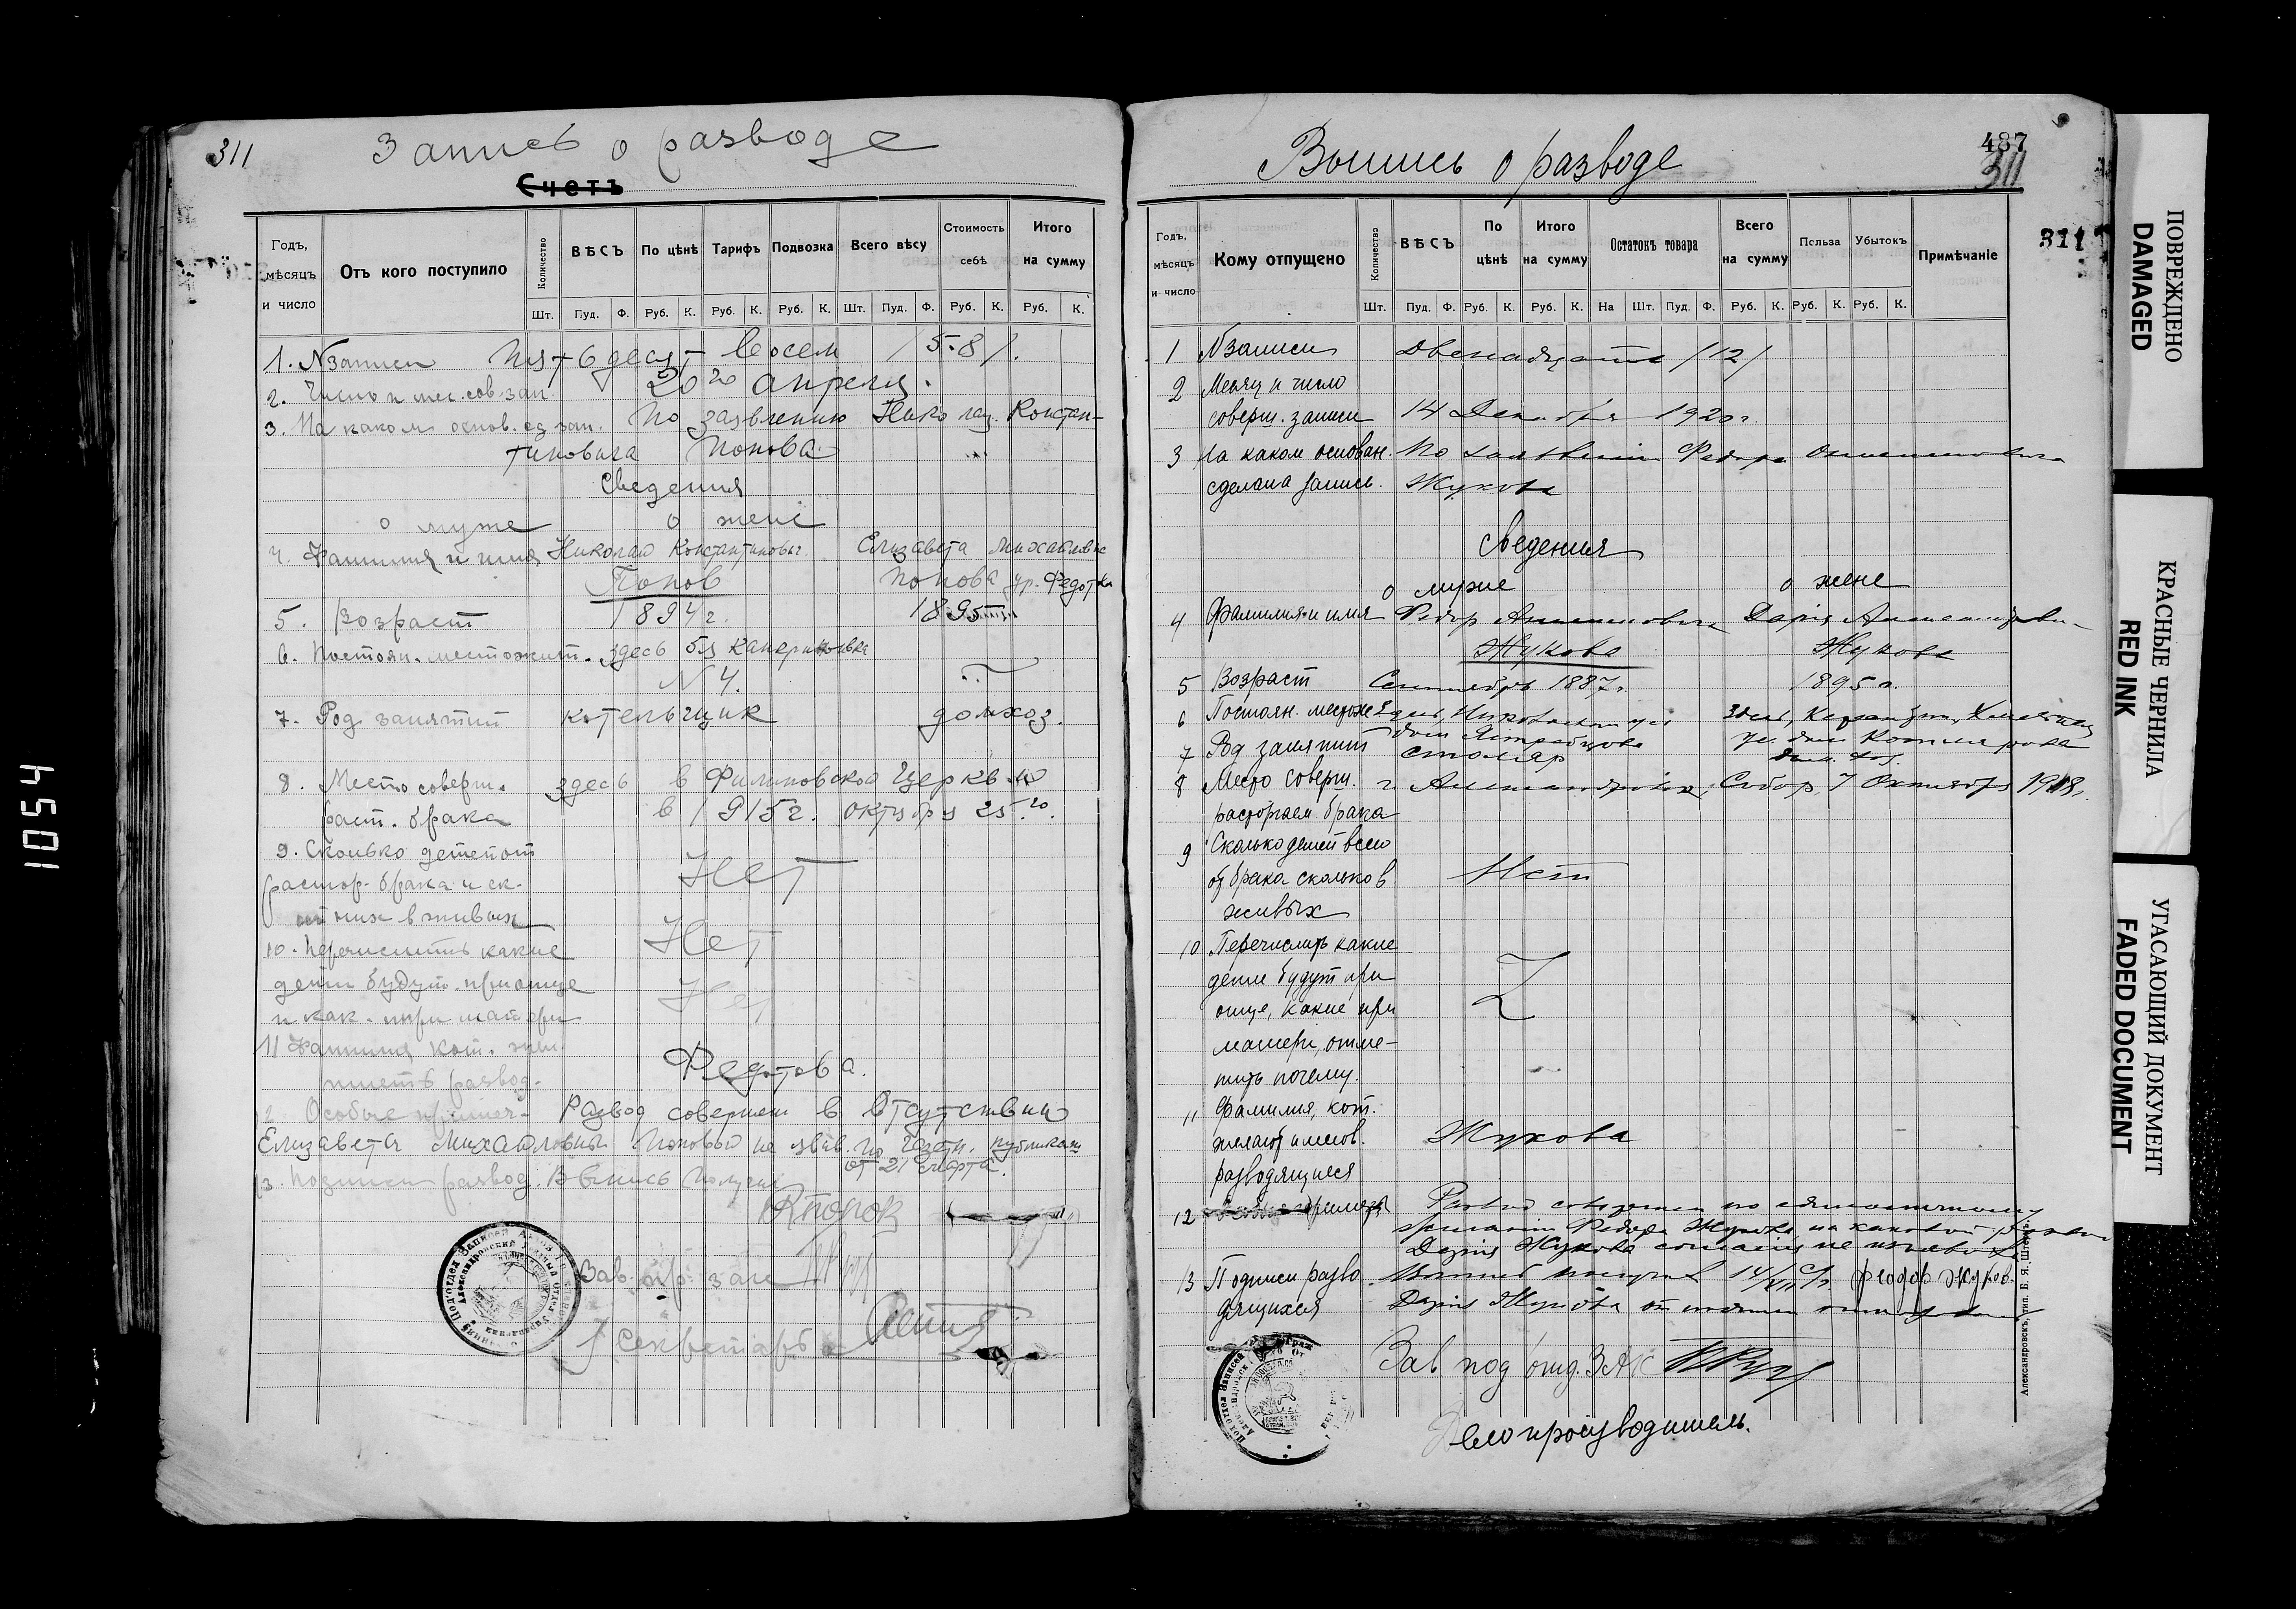 311
Запись о разводе
Счетъ
Годъ, мѣсяцъ и число
Отъ кого поступило
Количество
ВѢСЪ
По цѣнѣ
Тарифъ
Подвозка
Всего вѣсу
Стоимость себѣ
Итого на сумму
Шт. Пуд. Ф. Руб. К. Руб. К. Руб. К. Шт. Пуд. Ф. Руб. К. Руб. К.
1. N записи Пятьдесят восем /58/.
2. Число и мес. сов. зап. 20го апреля.
3. На каком основ. сд зап. По заявлению Николая Констан-
тиновича Попова
Сведения
о муже о жене
4. Фамилия и имя Николай Константинович Елизавета Михайловна
Попов Попова ур. Федотова
5. Возраст 1894 г. 1895 г.
6. Постоян. местожит. здесь
N 4.
7. Род занятий котельщик домхоз.
8. Место соверш. здесь в Филиповской Церкви
раст. брака в 1915 г. октября 25го.
9. Сколько детей от
растор. брака и ск.
от них в живых
Нет
10. Перечислить какие Нет
дети будут при отце Нет
и как. при матери
11 Фамилия кот. жел.
иметь развод. Федотова.
12. Особые примеч. Развод совершен в отсутствии
Елизаветы Михайловны Поповой не явив. по газетн. публикац
от 21 марта.
13. Подписи развод. Выпись получил
НКПопов
Зав. п/о зап
Секретарь
1054
Выпись о разводе
487
311
311
Годъ, мѣсяцъ и число
Кому отпущено
Количество
ВѢСЪ
По цѣнѣ
Итого на сумму
Остатокъ товара
Всего на сумму
Польза
Убытокъ
Примѣчаніе
Шт. Пуд. Ф. Руб. К. Руб. К. На Шт. Пуд. Ф. Руб. К. Руб. К. Руб. К.
1 N записи Двенадцать /12/
2 Месяц и число
соверш. записи 14 Декабря 1920 г.
3 На каком основан. По заявлению Федора
сделана запись. Жукова
Сведения
о муже о жене
4 Фамилия и имя Федор Дарія
Жуков Жукова
5 Возраст Сентябрь 1887 г. 1895 г.
6 Постоян. местож Здесь, Здесь,
дом ул. дом
7 Род занятий столяр дом. хоз.
8 Место соверш. г. Александровск, Собор, 7 Октября 1918 г.
расторгаем. брака
9 Сколько детей всего
от брака сколько в Нет
живых
10 Перечислить какие
дети будут при
отце, какие при
матери, отме-
тить почему.
11 Фамилия, кот.
желают именов. Жукова
разводящиеся
12 Развод совершен по одностороннему
желанию Федора Жукова, на каковой развод
Дарія Жукова согласия не изъявила
13 Подписи разво Выпись получил 14/XII с/г. Федор Жуков.
дящихся Дарія Жукова от подписи отказалась
Зав под'отд. ЗАГС
Делопроизводитель.
Александровскъ, тип. Б. Я. Штернъ
ПОВРЕЖДЕНО
DAMAGED
КРАСНЫЕ ЧЕРНИЛА
RED INK
УГАСАЮЩИЙ ДОКУМЕНТ
FADED DOCUMENT